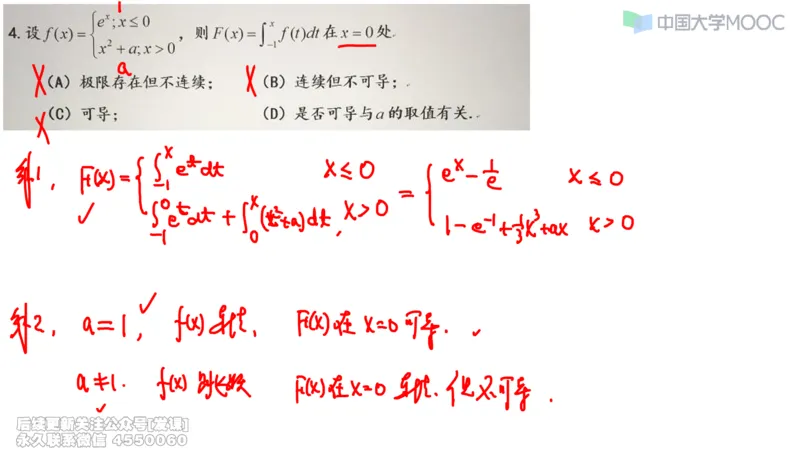 中国大学MOOC
4. 设 f(x) = { e^x; x ≤ 0
x² + a; x > 0 ，则 F(x) = ∫_{-1}^{x} f(t)dt 在 x = 0 处
1
a
X (A) 极限存在但不连续； X (B) 连续但不可导；
X (C) 可导； (D) 是否可导与 a 的取值有关.
解1, F(x) = { ∫_{-1}^{x} e^t dt x ≤ 0 = { e^x - 1/e x ≤ 0
✓ ∫_{-1}^{0} e^t dt + ∫_{0}^{x} (t²+a) dt, x > 0 1 - e^{-1} + 1/3 x³ + ax x > 0
解2, a = 1, ✓ f(x) 连续, F(x) 在 x = 0 可导. ✓
a ≠ 1. f(x) 跳跃 F(x) 在 x = 0 连续. 但不可导.
✓
后续更新关注公众号[发课]
永久联系微信 4550060